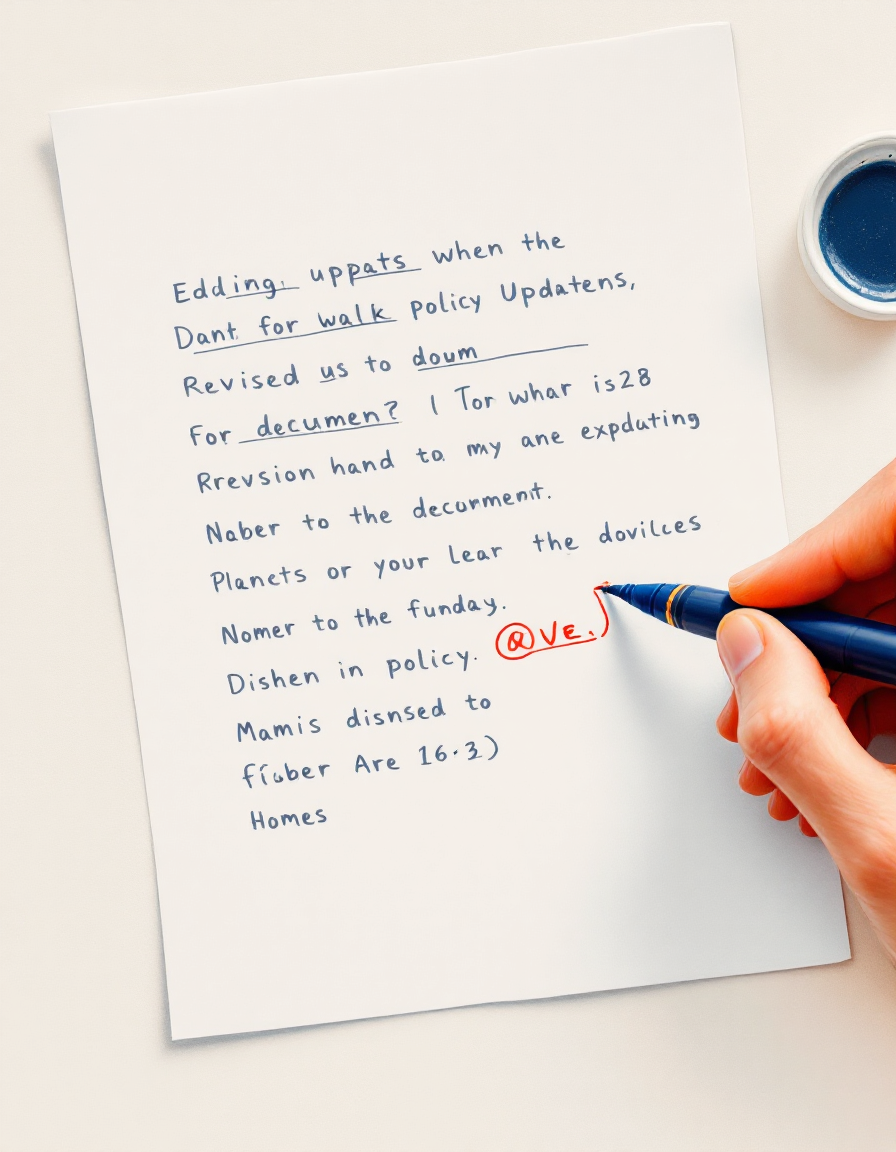 Edding: uppats when the
Dant for walk policy Updatens,
Revised us to doum
For decumen? ( Tor whar is28
Rrevsion hand to my ane expdating
Naber to the decorment.
Planets or your Lear the dovilces
Nomer to the funday.
Dishen in policy. @VE.
Mamis disnsed to
Are 16.3)
Homes